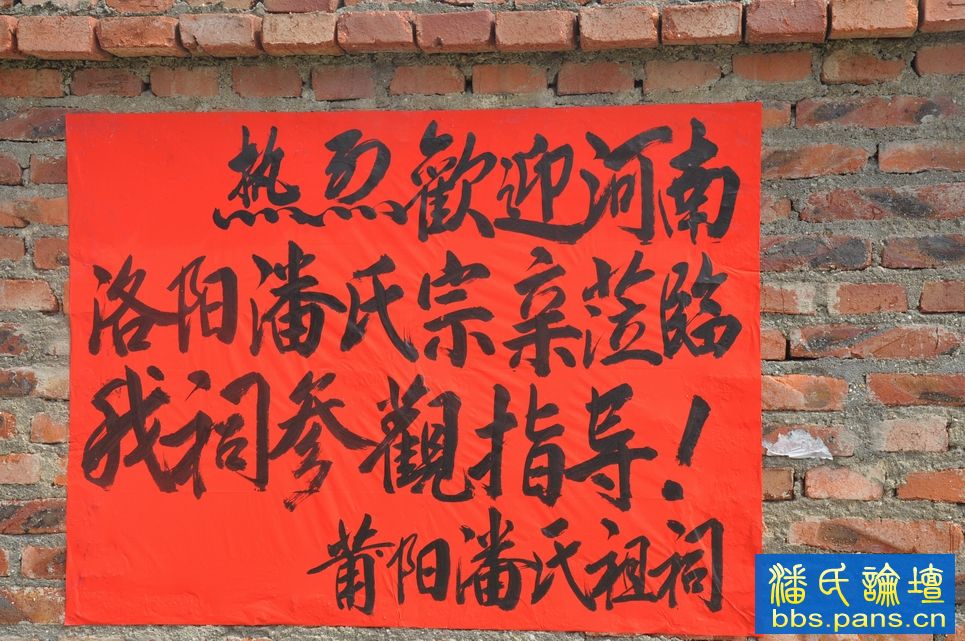 热烈歡迎河南
洛阳潘氏宗亲莅临
我祠参觀指导!
莆阳潘氏祖祠
潘氏論壇
bbs.pans.cn